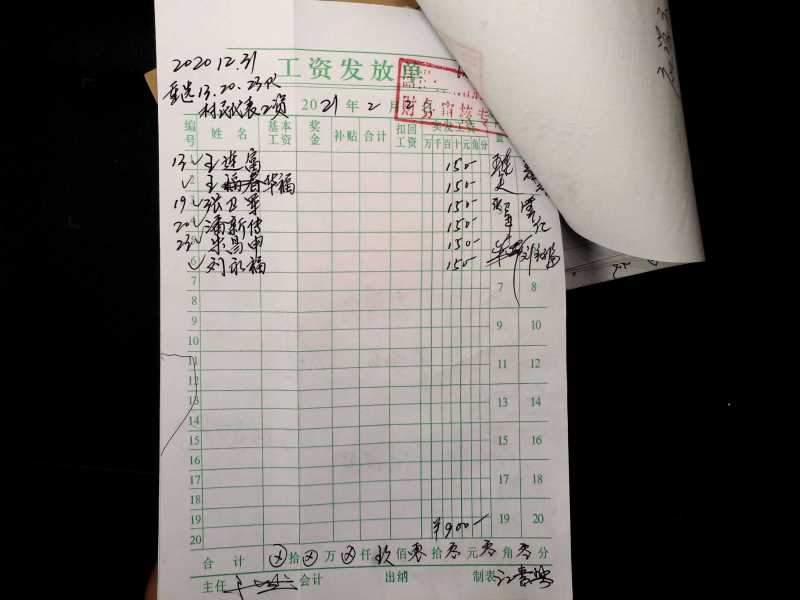 2020 12.31
重选13.20.23代
村民代表工资
工资发放单
2021年2月
财务审核专
编号 姓名 基本工资 奖金 补贴 合计 扣回工资 实发工资
万千百十元角分
13 王进富 150-
2 王福春华福 150-
19 张卫军 150-
20 潘新传 150-
23 朱昌申 150-
6 刘永福 150-
7 7 8
8
9 9 10
10
11 11 12
12
13 13 14
14
15 15 16
16
17 17 18
18
19 19 20
20
¥900-
合计 ⊗拾⊗万⊗仟玖佰零拾零元零角零分
主任 会计 出纳 制表